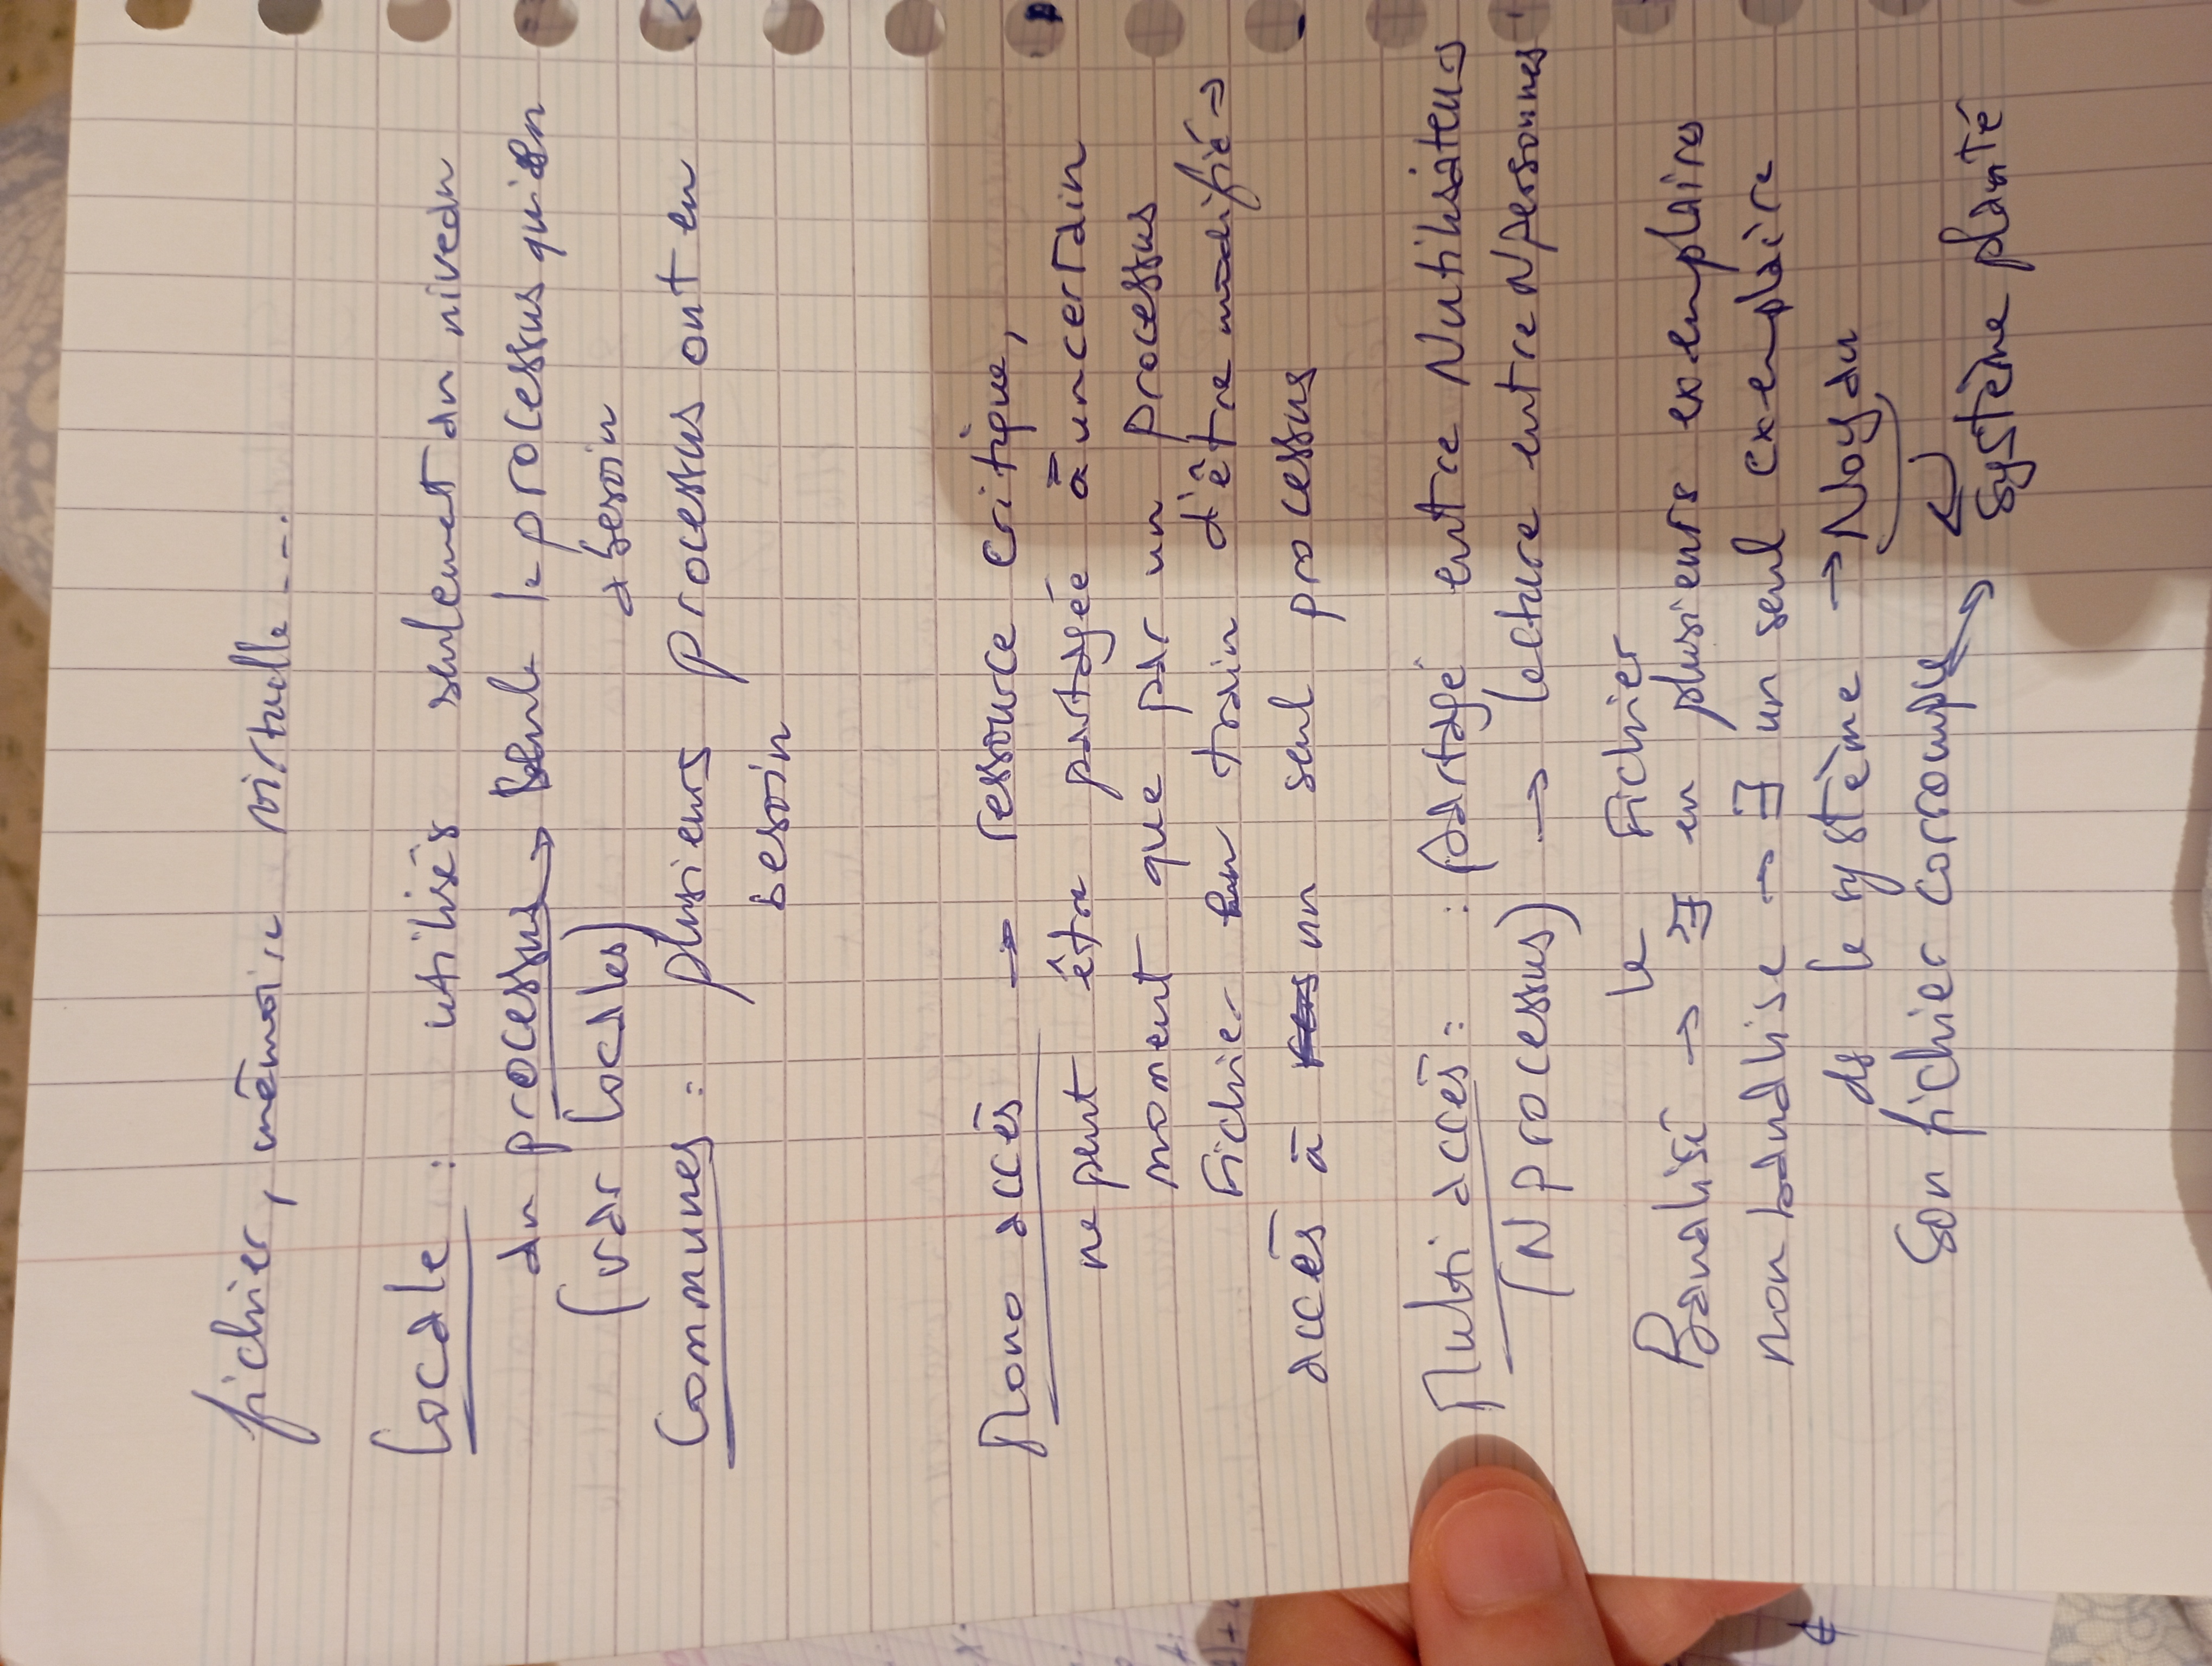 fichier, mémoire virtuelle ...
Locale : utilisés seulement au niveau
du processus → seule le processus qui en
(var locales) a besoin
Communes : plusieurs processus ont en
besoin
Mono accès → ressource critique,
ne peut être partagée à un certain
moment que par un processus
Fichier en train d'être modifié →
accès à un seul processus
Multi accès : : partagé entre N utilisateurs
(N processus) → lecture entre N personnes
le Fichier
Banalisé → ∃ en plusieurs exemplaires
non banalise → ∃ un seul exemplaire
ds le système → Noyau
Son fichier corrompu →
système planté